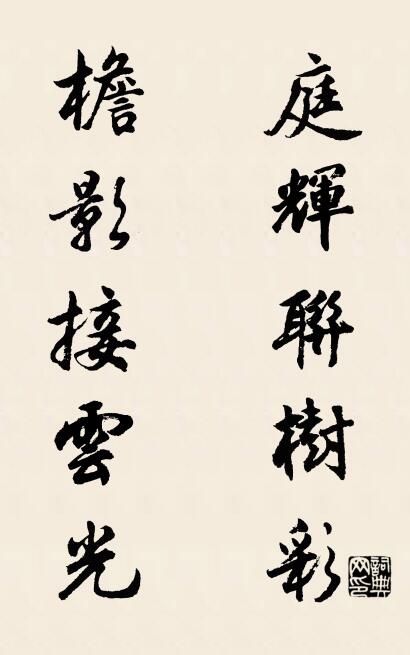 庭輝聯樹彩
檐影接雲光
詞典网印